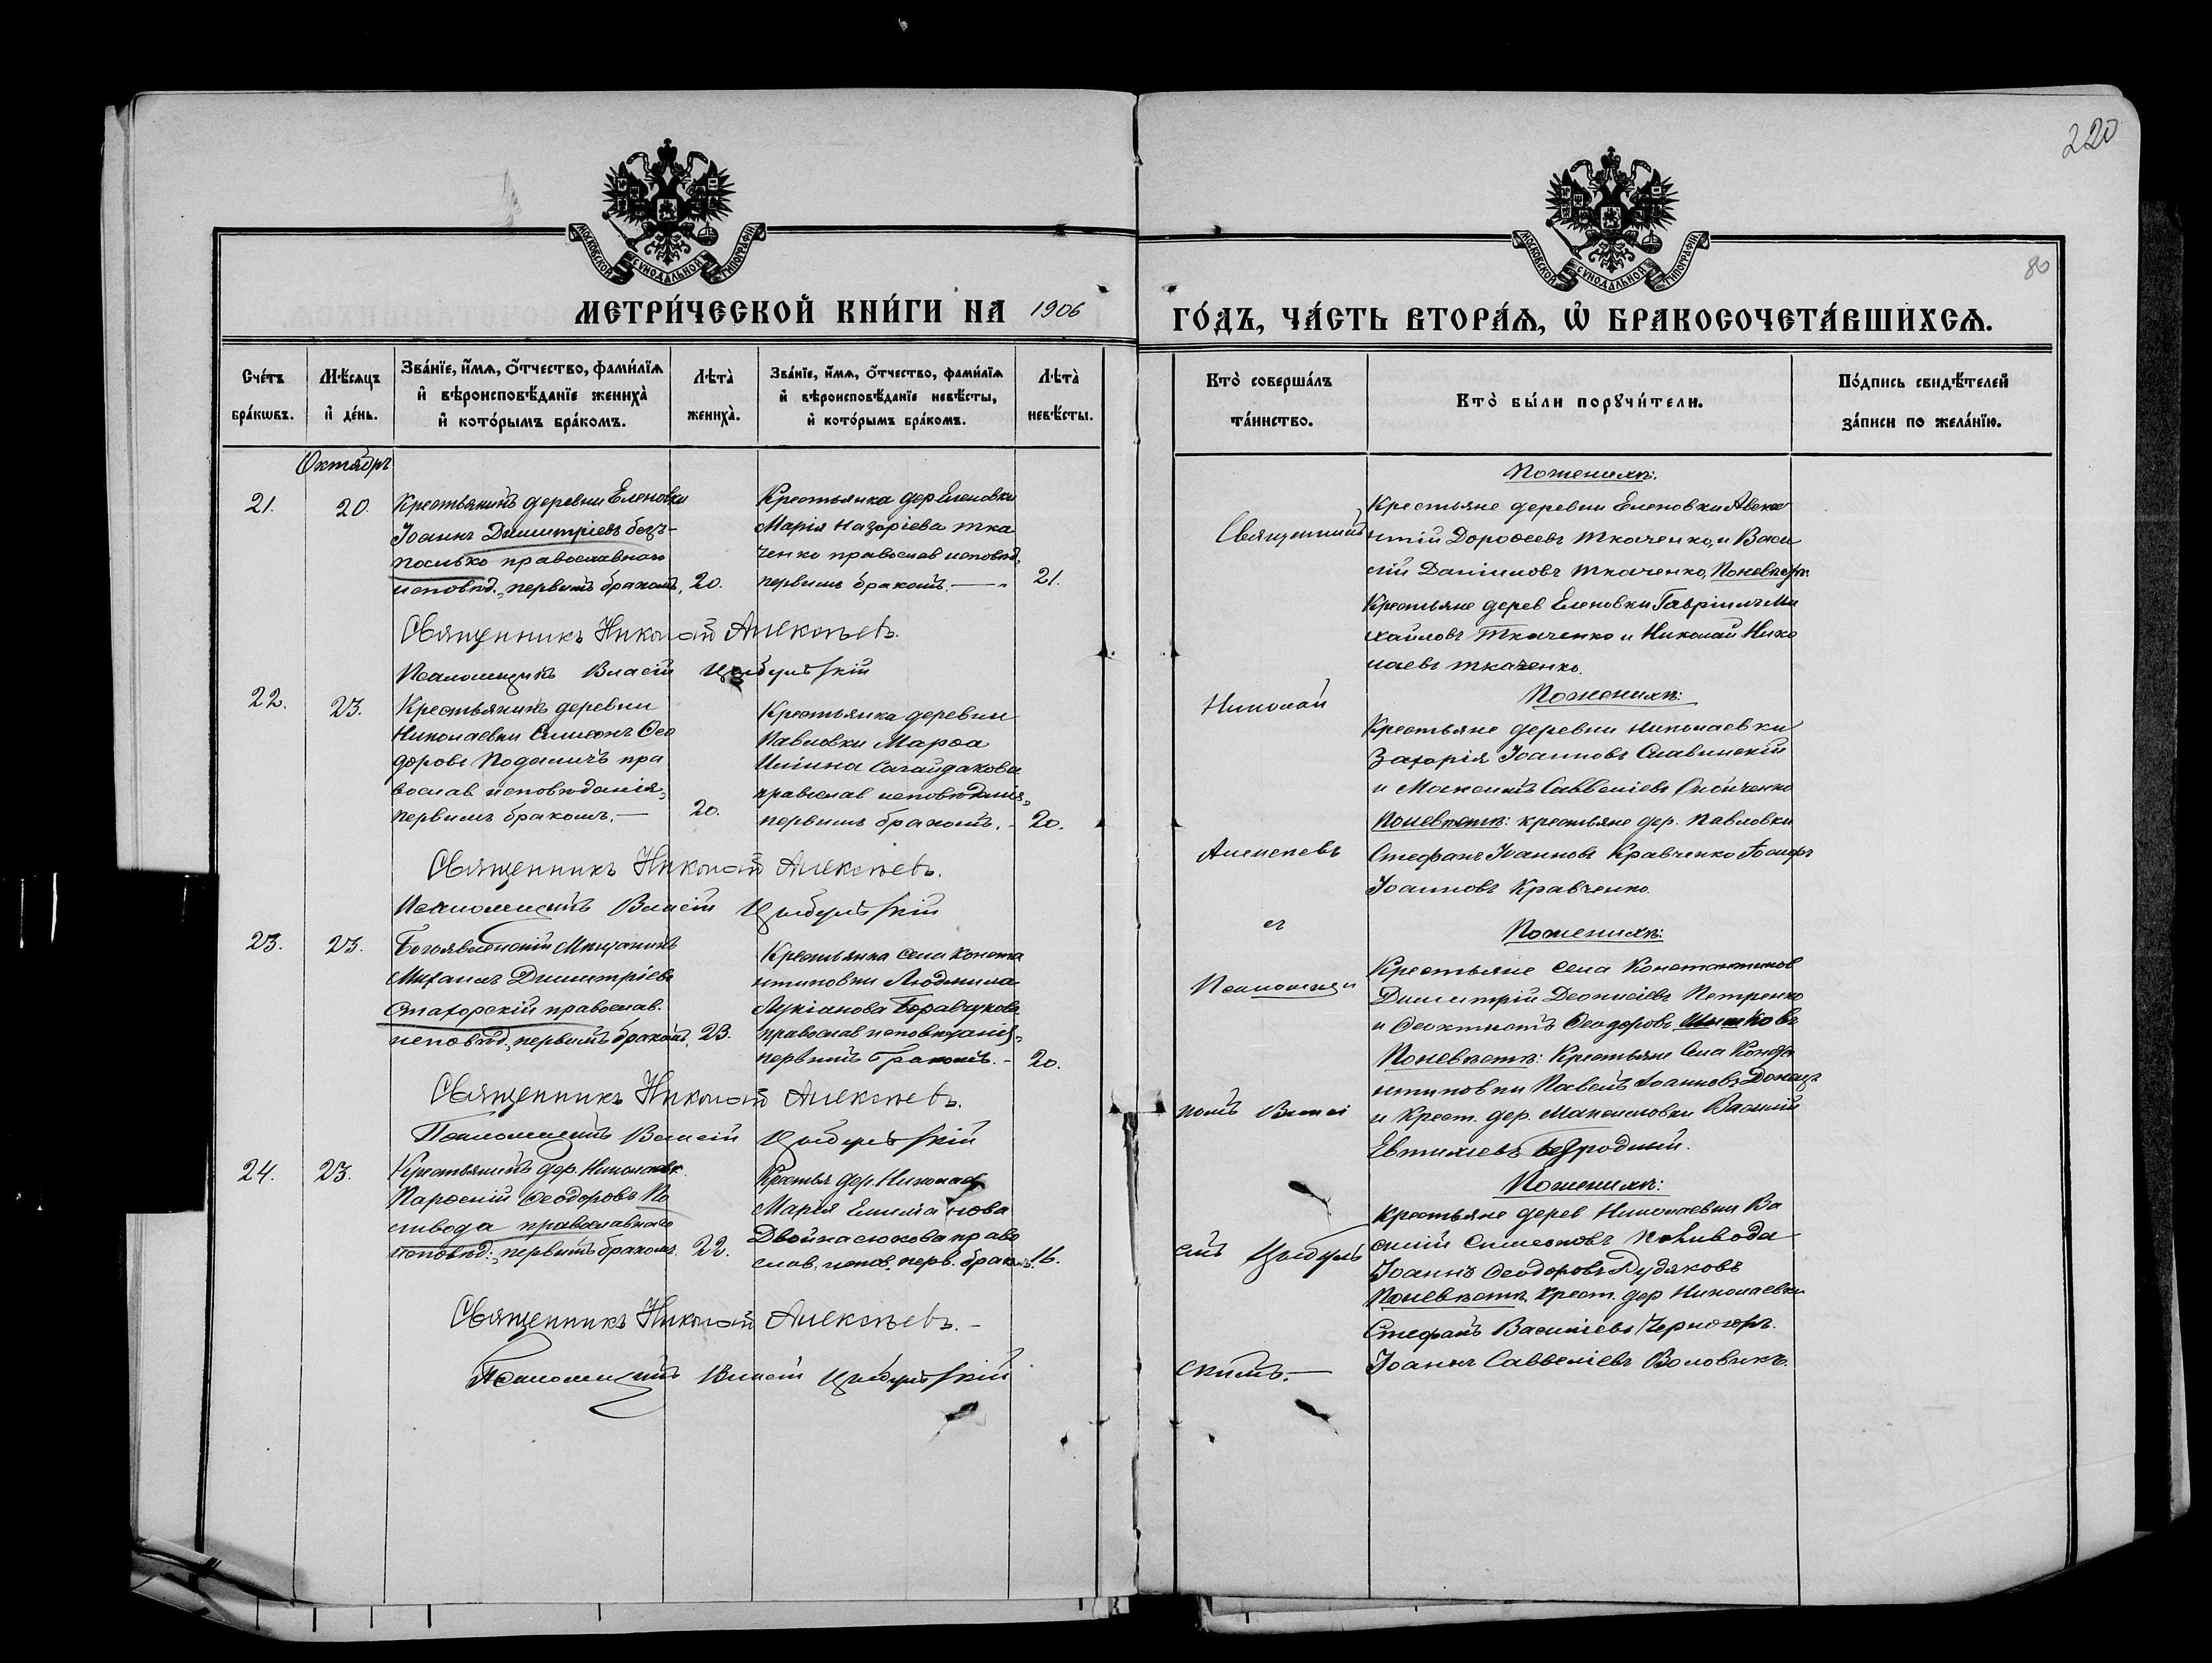 220
80
МОСКОВСКОЙ СѴНОДАЛЬНОЙ ТИПОГРАФІИ
МОСКОВСКОЙ СѴНОДАЛЬНОЙ ТИПОГРАФІИ
МЕТРИ́ЧЕСКОЙ КНИ́ГИ НА 1906
ГО́ДЪ, ЧА́СТЬ ВТОРА́Ѧ, Ѡ҆ БРАКОСОЧЕТА́ВШИХСѦ.
Сче́тъ бра́кѡвъ.
Мѣ́сяцъ и҆ де́нь.
Зва́нїе, и҆́мѧ, о҆́тчество, фами́лїѧ
и҆ вѣроисповѣ́данїе жениха̀
и҆ кото́рымъ бра́комъ.
Лѣта̀ жениха̀.
Зва́нїе, и҆́мѧ, о҆́тчество, фами́лїѧ
и҆ вѣроисповѣ́данїе невѣ́сты,
и҆ кото́рымъ бра́комъ.
Лѣта̀ невѣ́сты.
Кто̀ соверша́лъ та́инство.
Кто̀ бы́ли порꙋчи́тели.
По́дпись свидѣ́телей за́писи по жела́нїю.
Октябрь
21.
20.
Крестьянинъ деревни Еленовки
Іоаннъ Димитріевъ безъ-
палько православнаго
исповѣд., первымъ бракомъ,
20.
Крестьянка дер Еленовки
Марія Назаріева тка
ченко православ исповѣд,
первымъ бракомъ. —
21.
Священникъ Николай Алексѣевъ.
Псаломщикъ Власій Цыбульскій
22.
23.
Крестьянинъ деревни
Николаевки Симеонъ Ѳео
доровъ
пра
вослав исповѣданія,
первымъ бракомъ. —
20.
Крестьянка деревни
Павловки Марѳа
Иліина Сагайдакова
православ исповѣданія,
первымъ бракомъ. -
20.
Священникъ Николай Алексѣевъ.
Псаломщикъ Власій Цыбульскій
23.
23.
Богоявленскій Мѣщанинъ
Михаилъ Димитріевъ
Стахорскій православ.
исповѣд., первымъ бракомъ,
23.
Крестьянка села Конста
нтиновки Людмила
Лукіанова Боравчукова
православ исповѣданія,
первымъ бракомъ. -
20.
Священникъ Николай Алексѣевъ.
Псаломщикъ Власій Цыбульскій
24.
23.
Крестьянинъ дер. Николаевк.
Парѳеній Ѳеодоровъ По
ливода православнаго
исповѣд., первымъ бракомъ.
22.
дер. Николаев
Марія
Двойнаслюкова право
слав. испов. перв. бракомъ.
16.
Священникъ Николай Алексѣевъ. -
Псаломщикъ Власій Цыбульскій
Священникъ
Николай
Алексѣевъ
съ
Псаломщи
комъ Власі
емъ Цыбуль
скимъ. —
По женихѣ:
Крестьяне деревни Еленовки Авксе
нтій Дороѳеевъ Ткаченко, и Васи
лій Даніиловъ Ткаченко, По невѣстѣ:
Крестьяне дерев Еленовки Гавріилъ Ми
хайловъ Ткаченко и Николай Нико
лаевъ Ткаченко.
По женихѣ:
Крестьяне деревни Николаевки
Захарія Іоанновъ Славинскій
и Максимъ Саввеліевъ
По невѣстѣ: крестьяне дер. Павловки
Стефанъ Іоанновъ Кравченко Іосифъ
Іоанновъ Кравченко.
По женихѣ:
Крестьяне села Константинов
Димитрій Діонисіевъ Петренко
и Ѳеоктистъ Ѳеодоровъ
По невѣстѣ: Крестьяне Села Конста
нтиновки Павелъ Іоанновъ Донецъ
и Крест. дер. Максимовки Василій
Евтихіевъ Безродный.
По женихѣ:
Крестьяне дерев Николаевки Ва
силій Симеоновъ Поливода
Іоаннъ Ѳеодоровъ Дудяковъ
По невѣстѣ. Крест. дер Николаевки
Стефанъ Василіевъ Черногоръ.
Іоаннъ Саввеліевъ Воловикъ.